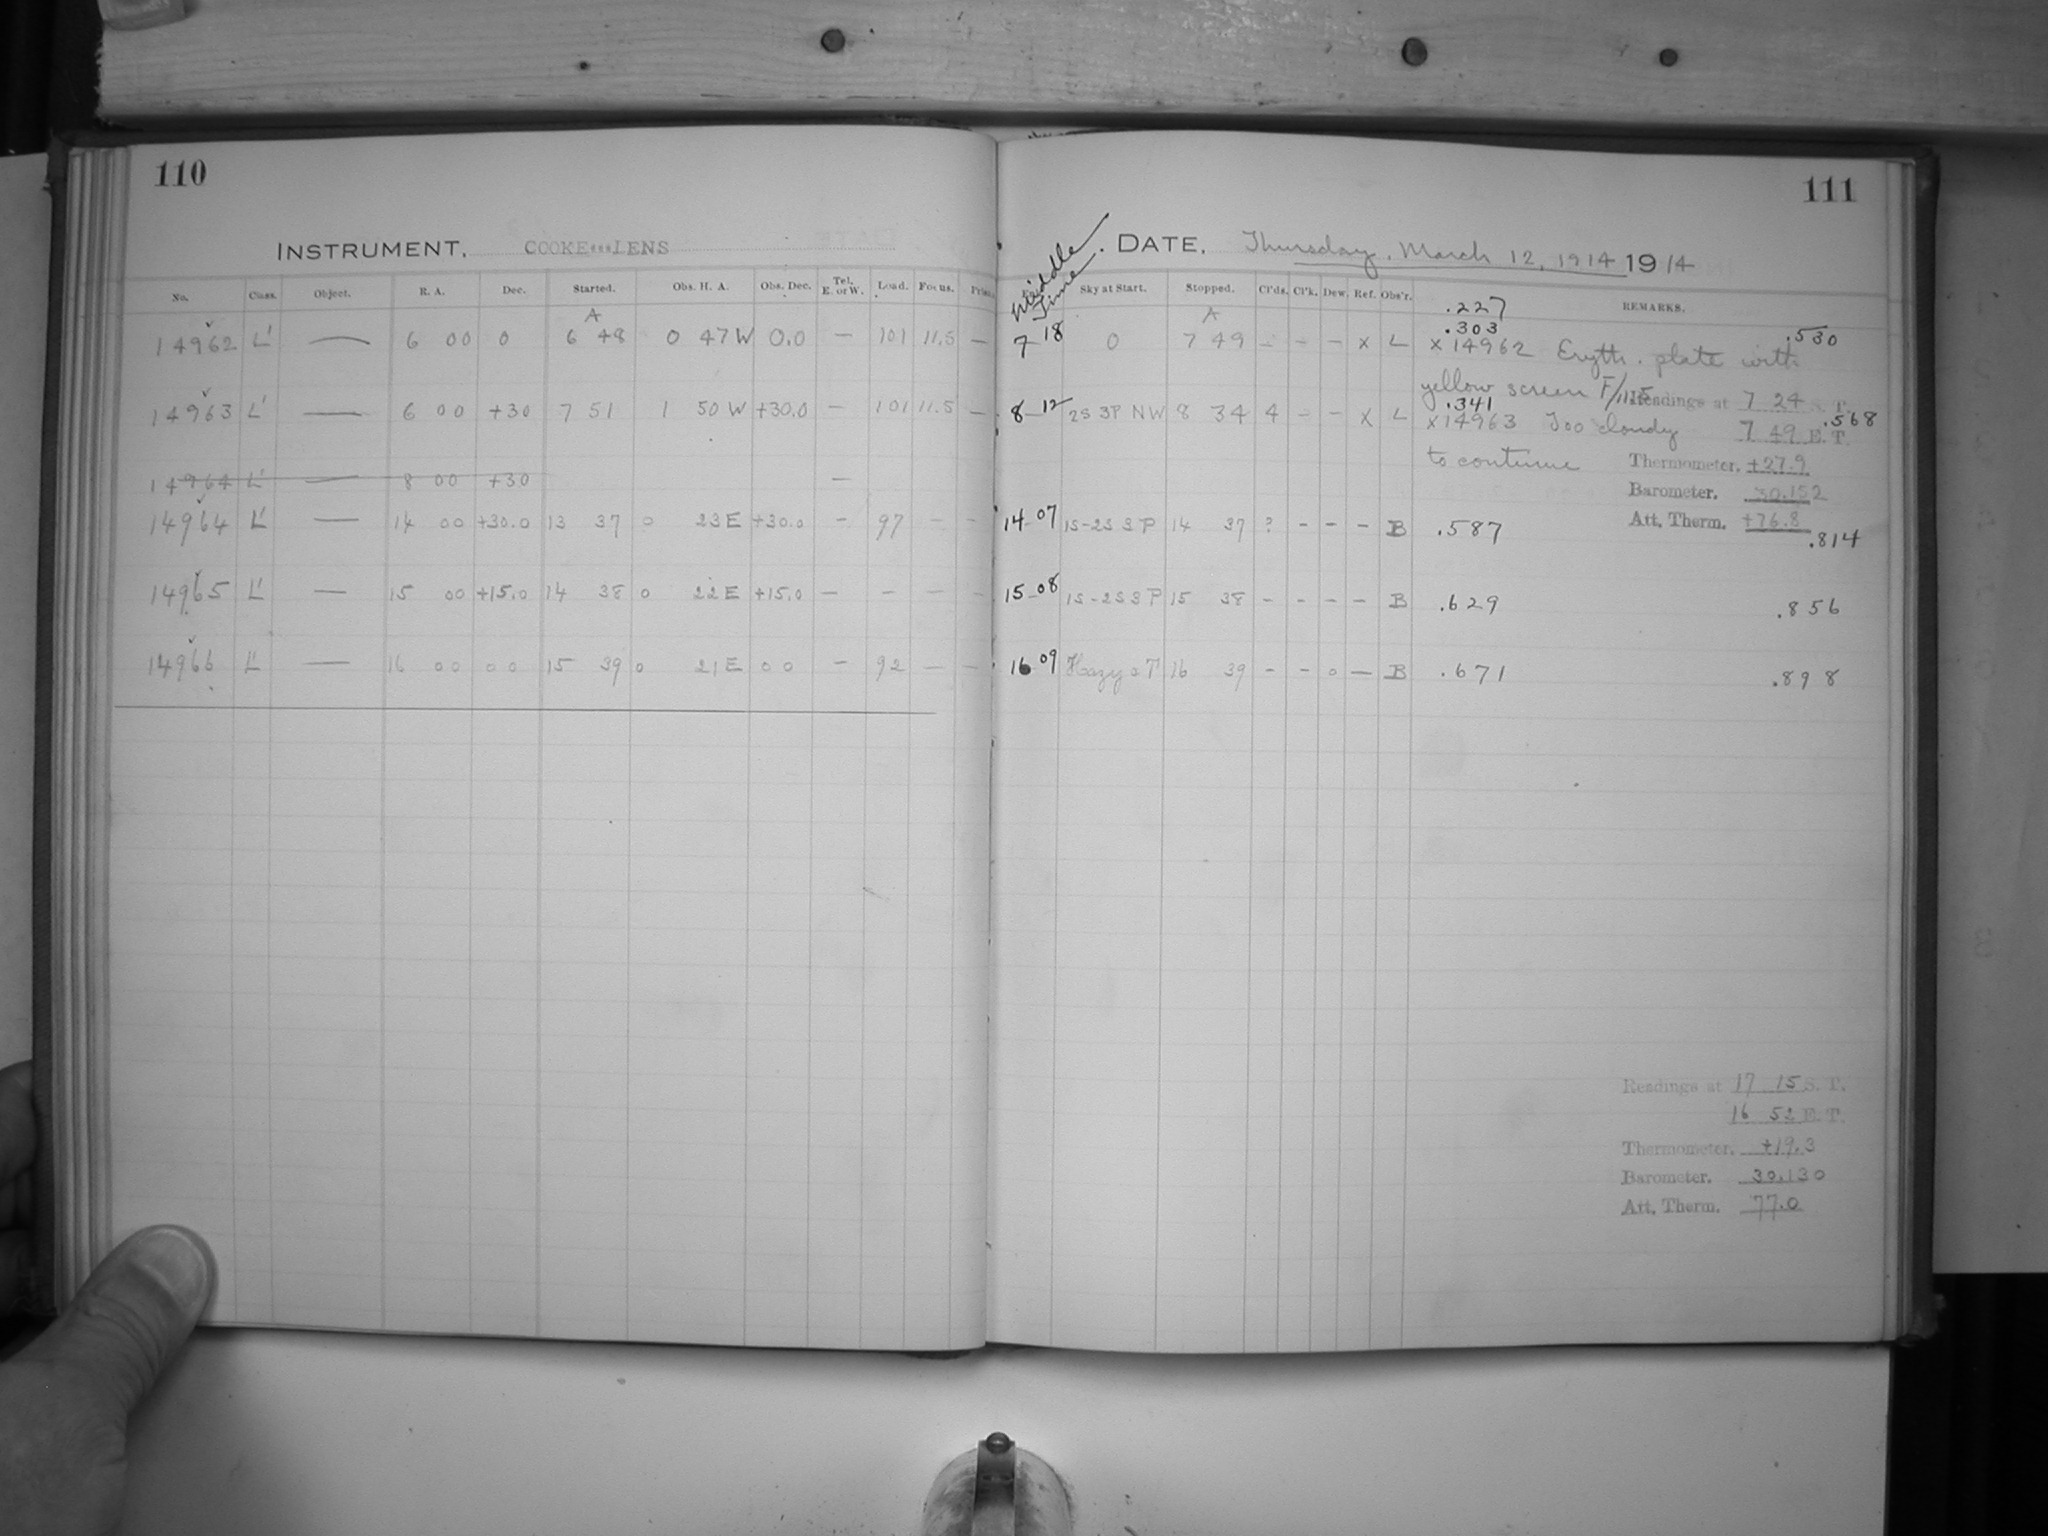 110
INSTRUMENT. COOKE LENS
No. Class. Object. R. A. Dec. Started. Obs. H. A. Obs. Dec. Tel. E. or W. Load. Focus.
A
14962 L' — 6 00 0 6 48 0 47 W 0.0 — 101 11.5 —
14963 L' — 6 00 +30 7 51 1 50 W +30.0 — 101 11.5 —
14964 L' — 8 00 +30 —
14964 L' — 14 00 +30.0 13 37 0 23 E +30.0 — 97 — —
14965 L' — 15 00 +15.0 14 38 0 22 E +15.0 — — — —
14966 L' — 16 00 00 15 39 0 21 E 00 — 92 — —
111
DATE. Thursday, March 12, 1914 1914
Middle Time Sky at Start. Stopped. Cl'ds. Cl'k. Dew. Ref. Obs'r. REMARKS.
.227
A
.303 .530
7 18 0 7 49 – – – x L x 14962 Eryth. plate with
yellow screen F/11.5 Readings at 7 24 S. T.
.341 .568
8 12 2S 3P NW 8 34 4 – – x L x 14963 Too cloudy 7 49 E. T.
to continue Thermometer. +27.9
Barometer. 30.152
Att. Therm. +76.8
14 07 1S-2S 3P 14 37 ? – – – B .587 .814
15 08 1S-2S 3P 15 38 – – – – B .629 .856
16 09 Hazy 16 39 – – 0 — B .671 .898
Readings at 17 15 S. T.
16 52 E. T.
Thermometer. +19.3
Barometer. 30.130
Att. Therm. 77.0